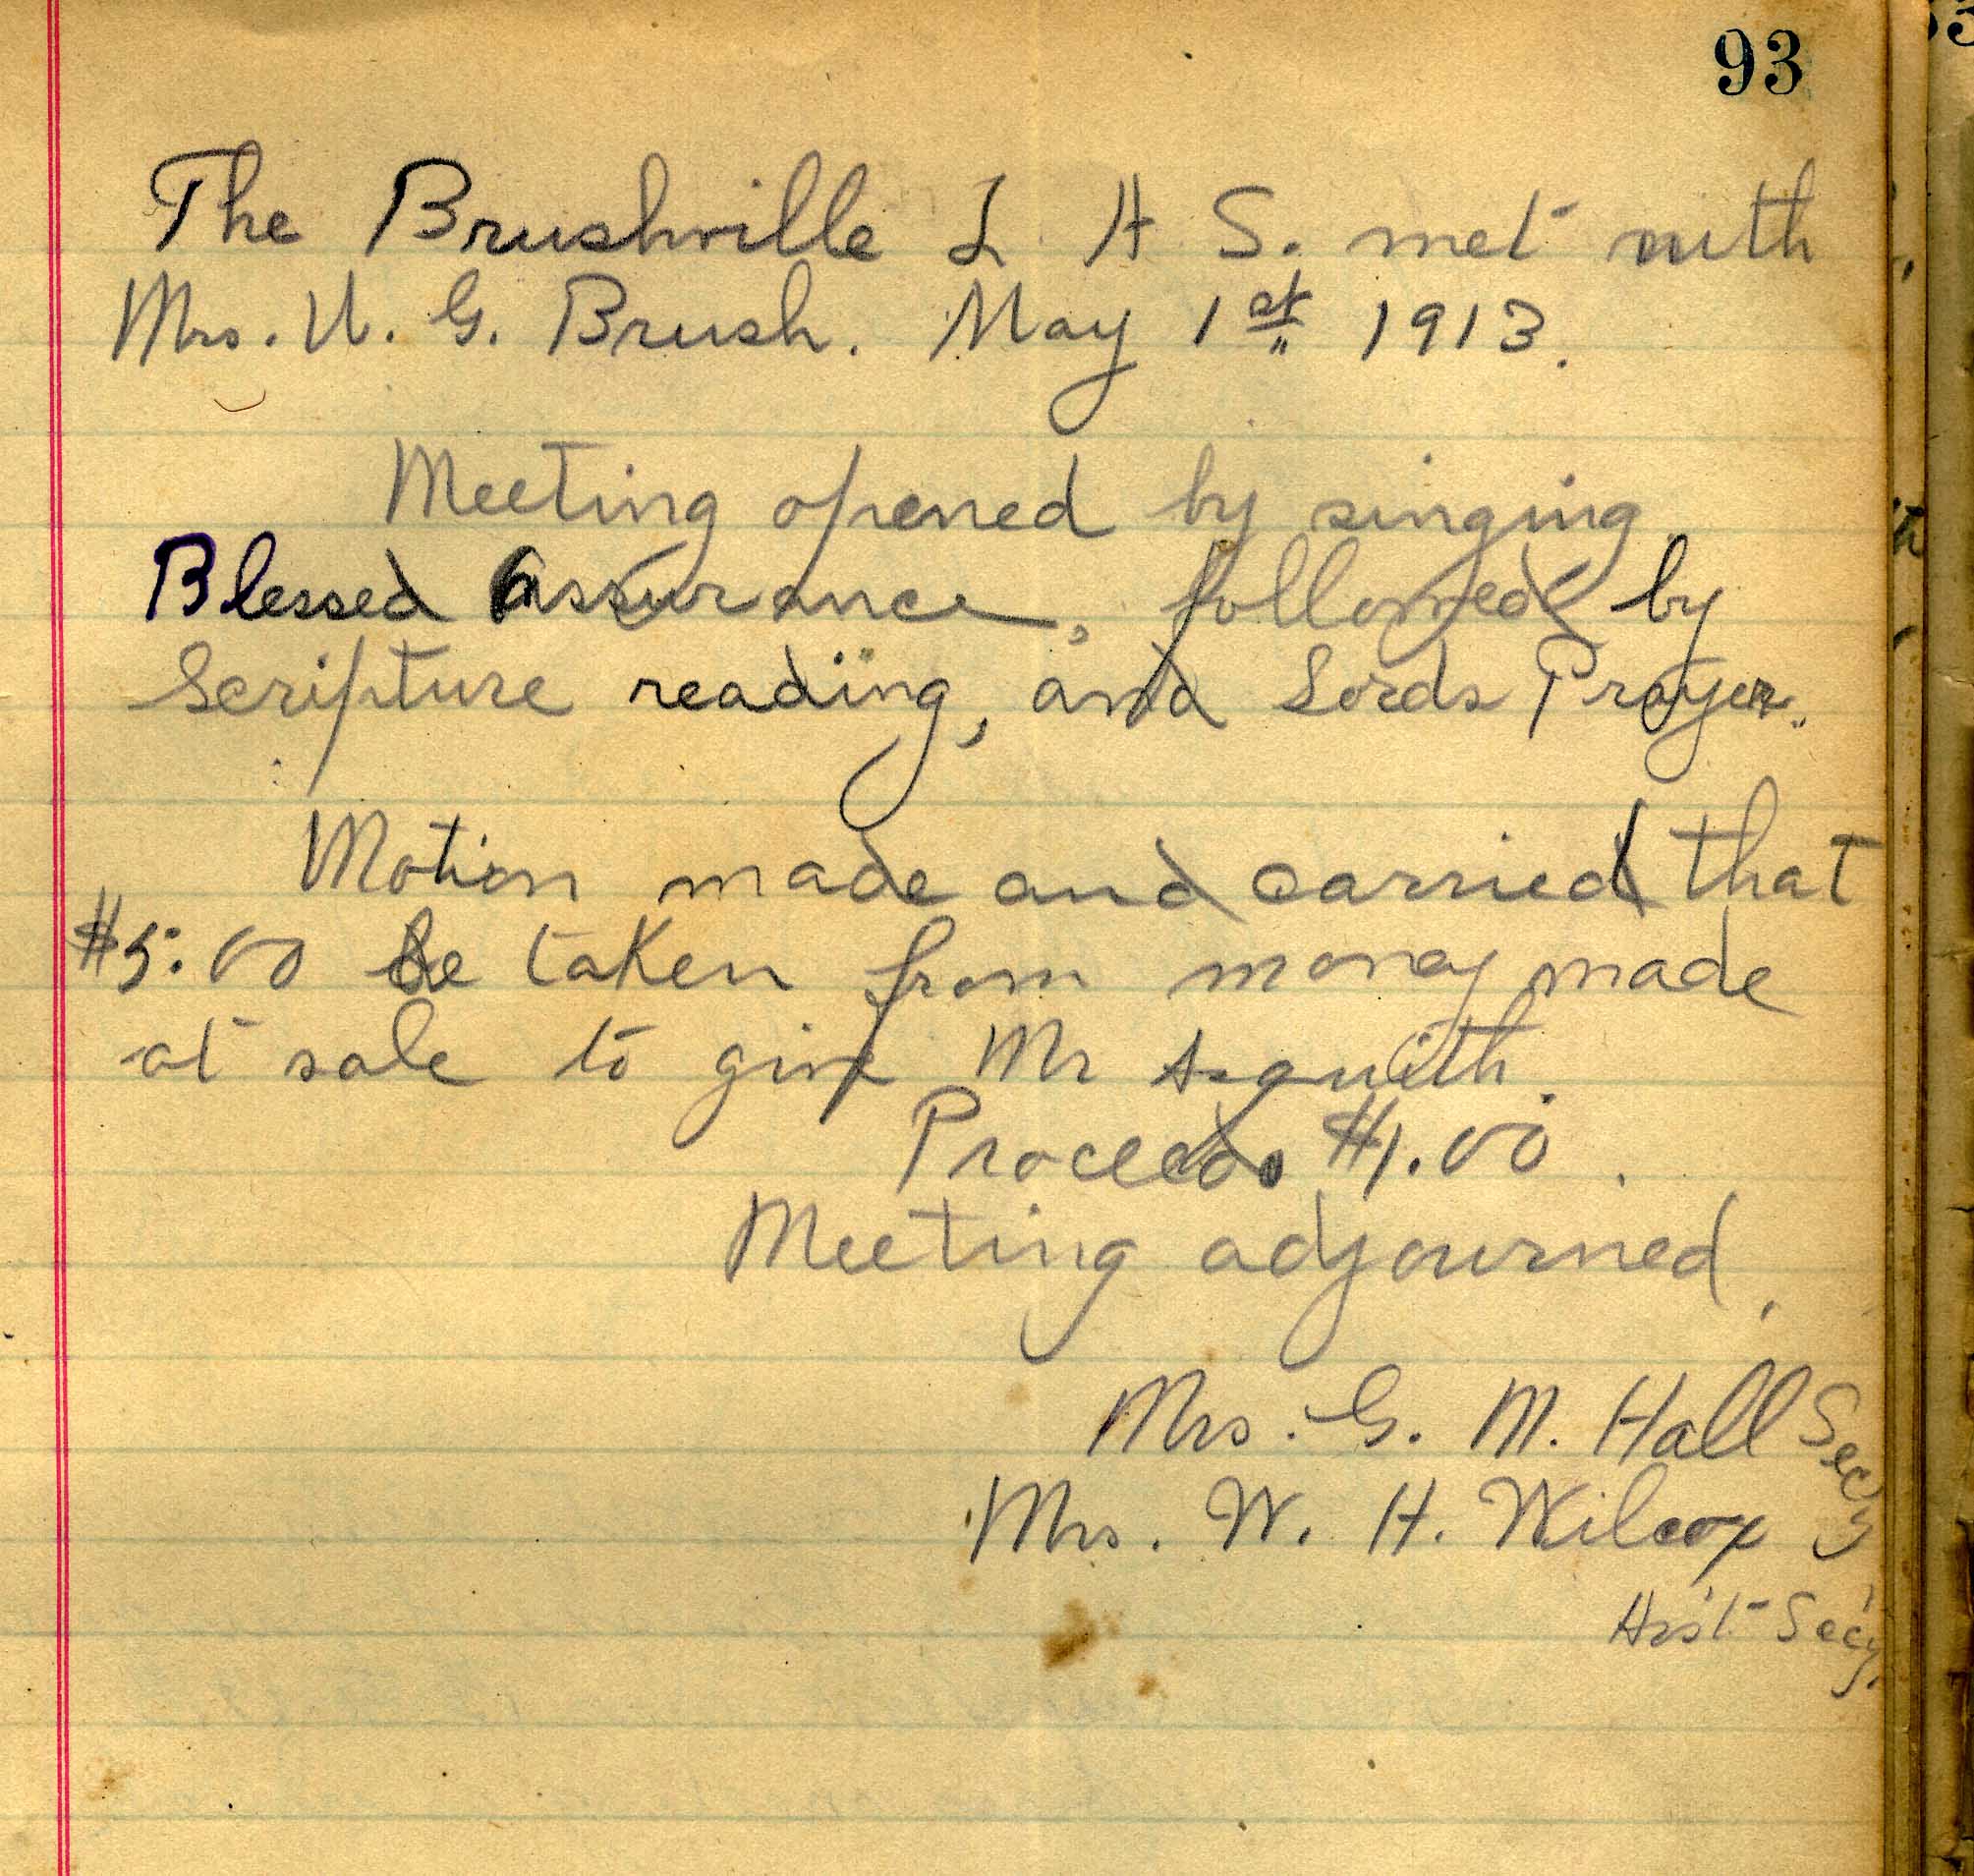 93
The Brushville L. A. S. met with
Mrs. U. G. Brush. May 1st 1913.
Meeting opened by singing
Blessed Assurance, followed by
Scripture reading, and Lords Prayer.
Motion made and carried that
$5.00 be taken from money made
at sale to give Mr Asquith.
Proceeds $1.00.
Meeting adjourned.
Mrs. G. M. Hall Secy
Mrs. W. H. Wilcox
Ass't Sec'y.